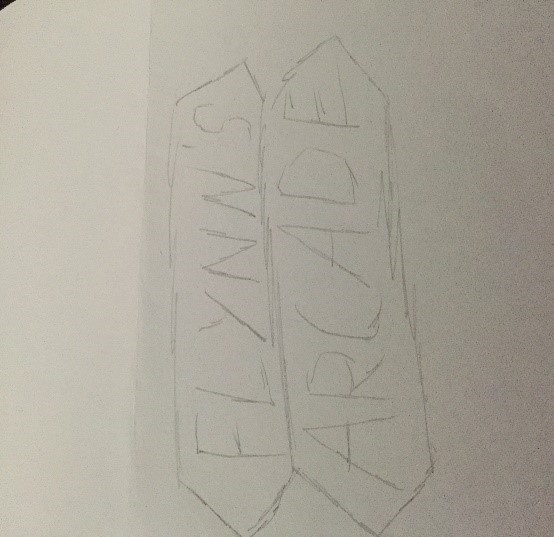 FLYNN'S
ARCADE